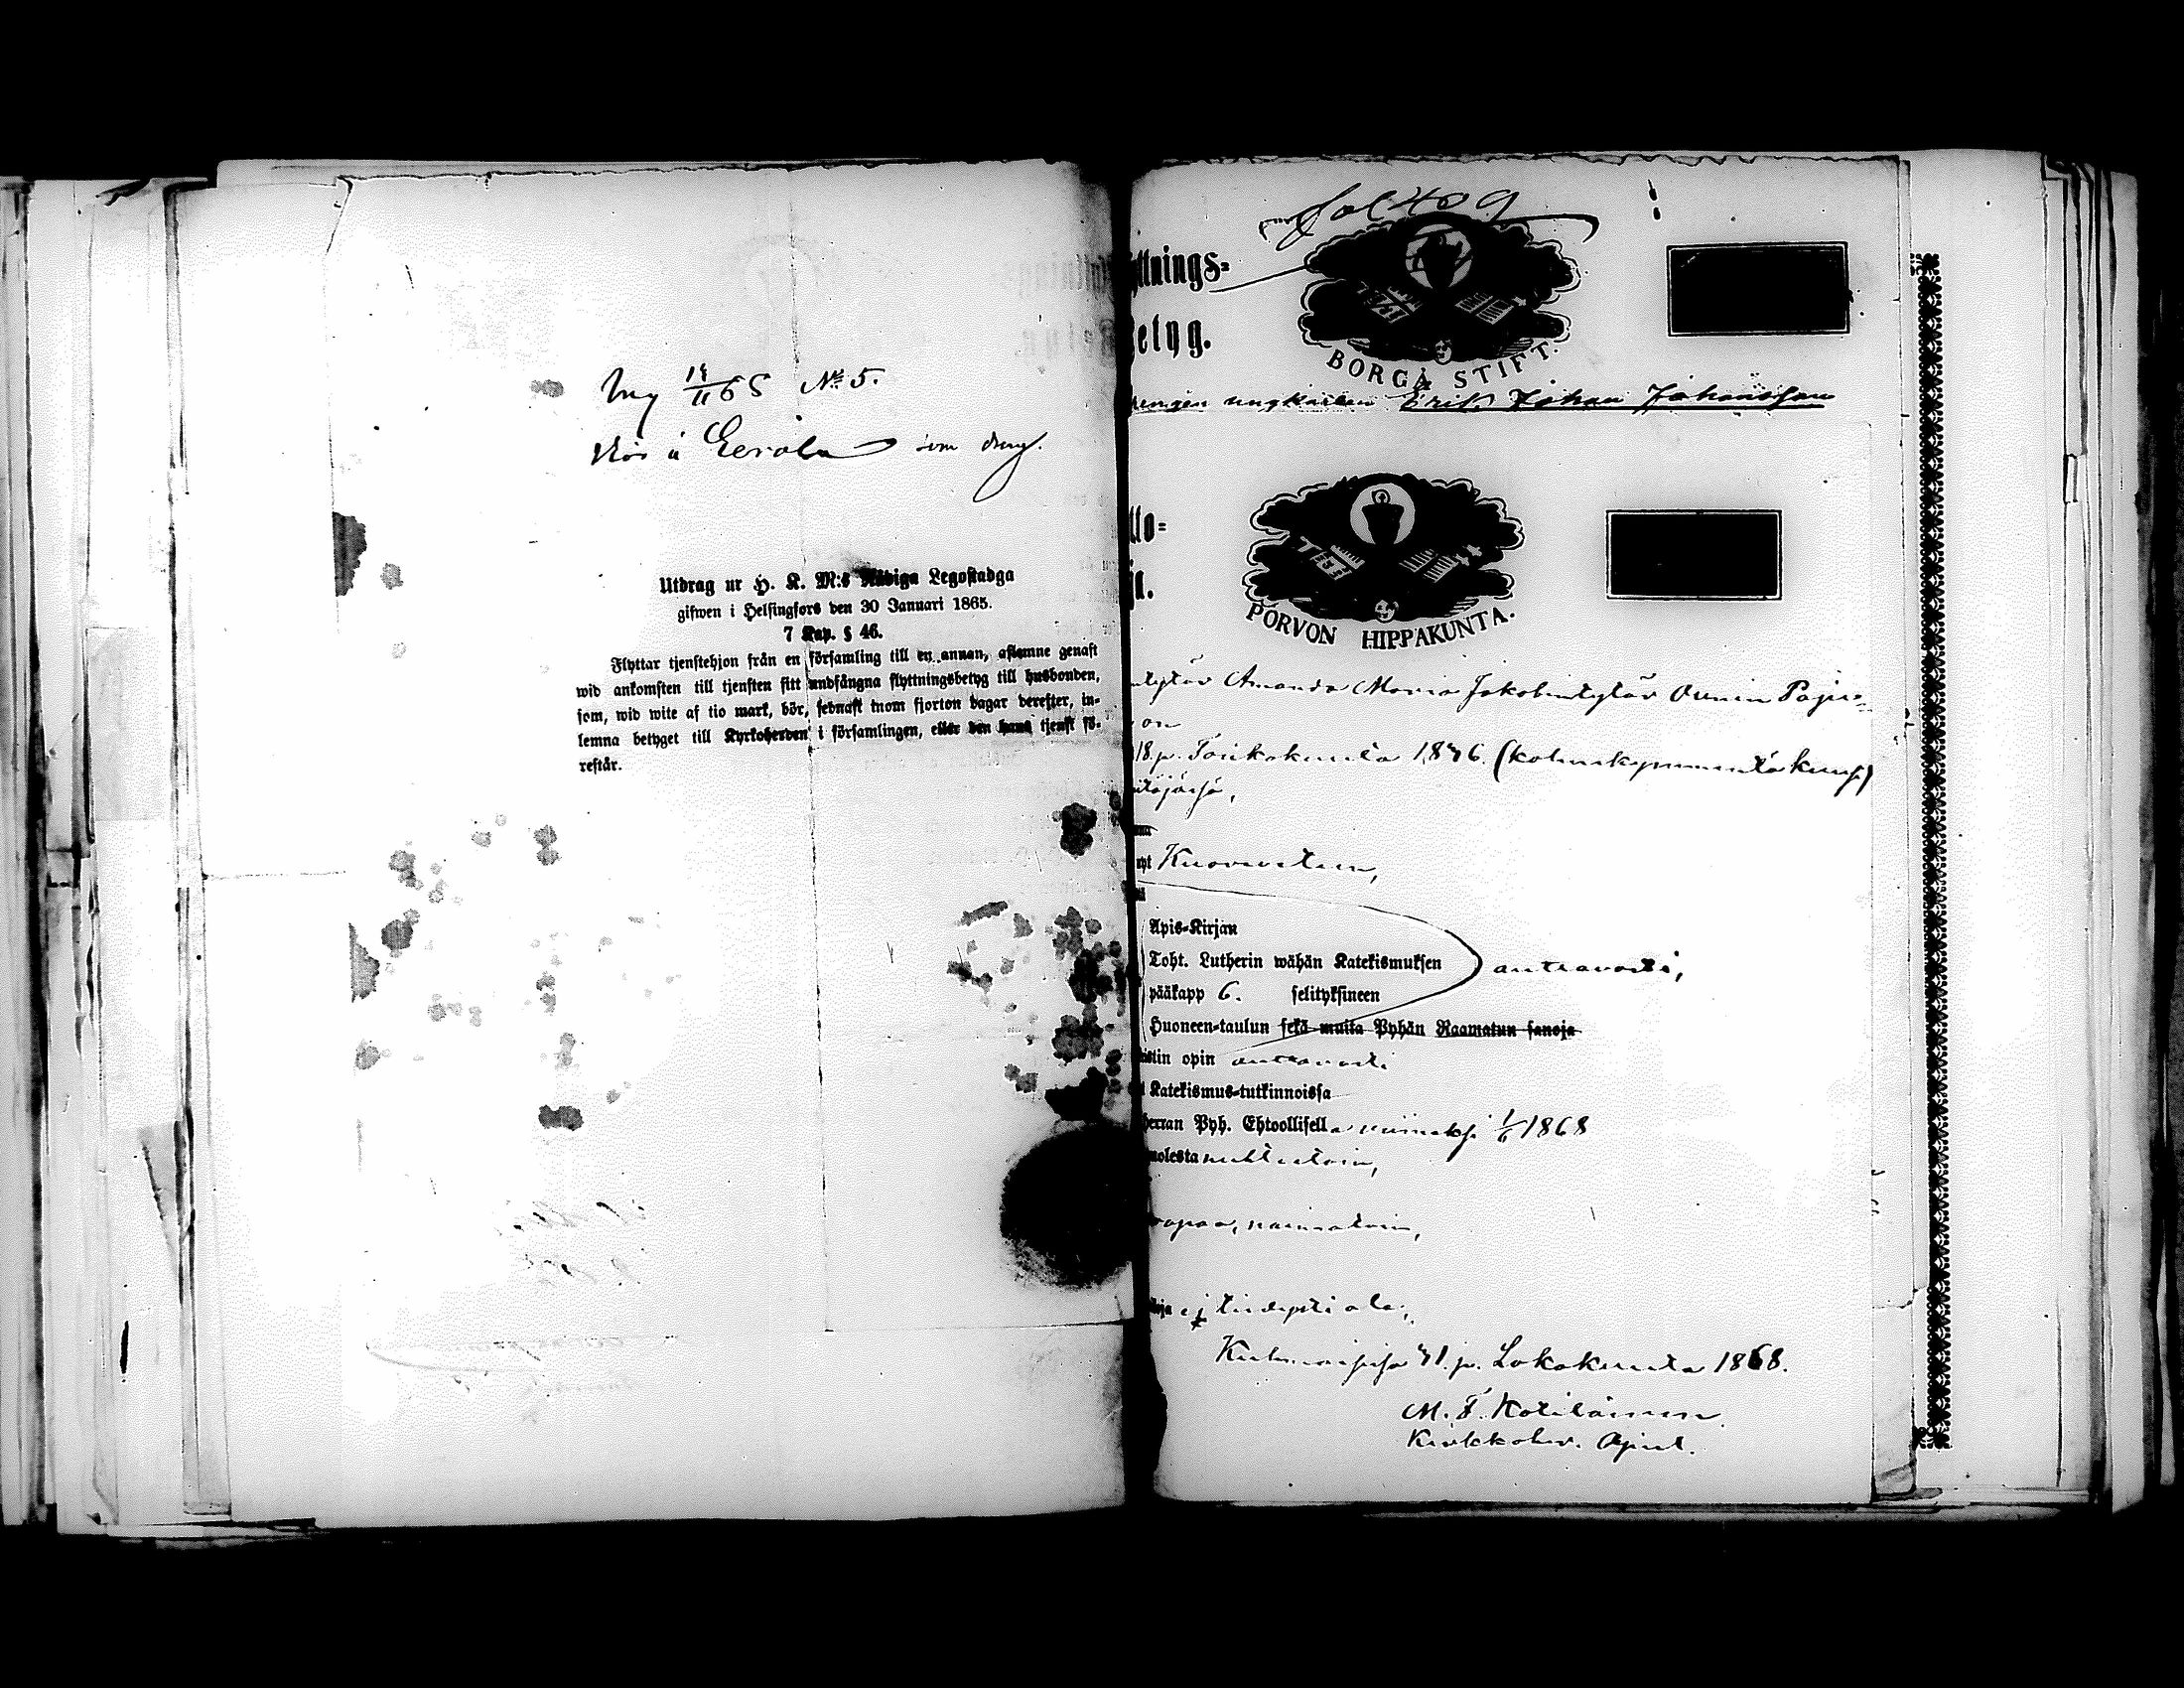 Iny 14/11 68 No 5.
Eerola som dräng.
Utdrag ur H. K. M:s Nådiga Legostadga
gifwen i Helsingfors den 30 Januari 1865.
7 Kap. § 46.
Flyttar tjenstehjon från en församling till en annan, aflemne genast
wid ankomsten till tjensten sitt undfångna flyttningsbetyg till husbonden,
som, wid wite af tio mark, bör, sednast inom fjorton dagar derefter, in-
lemna betyget till Kyrkoherden i församlingen, eller den hans tjenst fö-
restår.
fol 409
ttnings-
Betyg.
BORGÅ STIFT.
drengen ungkarlen Erik Johan Johansson
tto-
ja.
PORVON HIPPAKUNTA.
Amanda Maria Jakobintytär
18 p. Toukokuuta 1846. (kolmekymmentä kuusi)
nyt Kuoreveteen,
Apis-Kirjan
Toht. Lutherin wähän Katekismuksen auttavasti,
pääkapp 6. selityksineen
Huoneen-taulun sekä muita Pyhän Raamatun sanoja
istin opin auttavasti
Katekismus-tutkinnoissa
Herran Pyh. Ehtoollisella viimeksi 1/6 1868
puolesta nuhteetoin,
vapaa, naimatoin,
toja ej tiedysti ole,
Kuhmoisissa 41. p. Lokakuuta 1868.
M. F. Kotilainen
Kirkkoher. Apul.